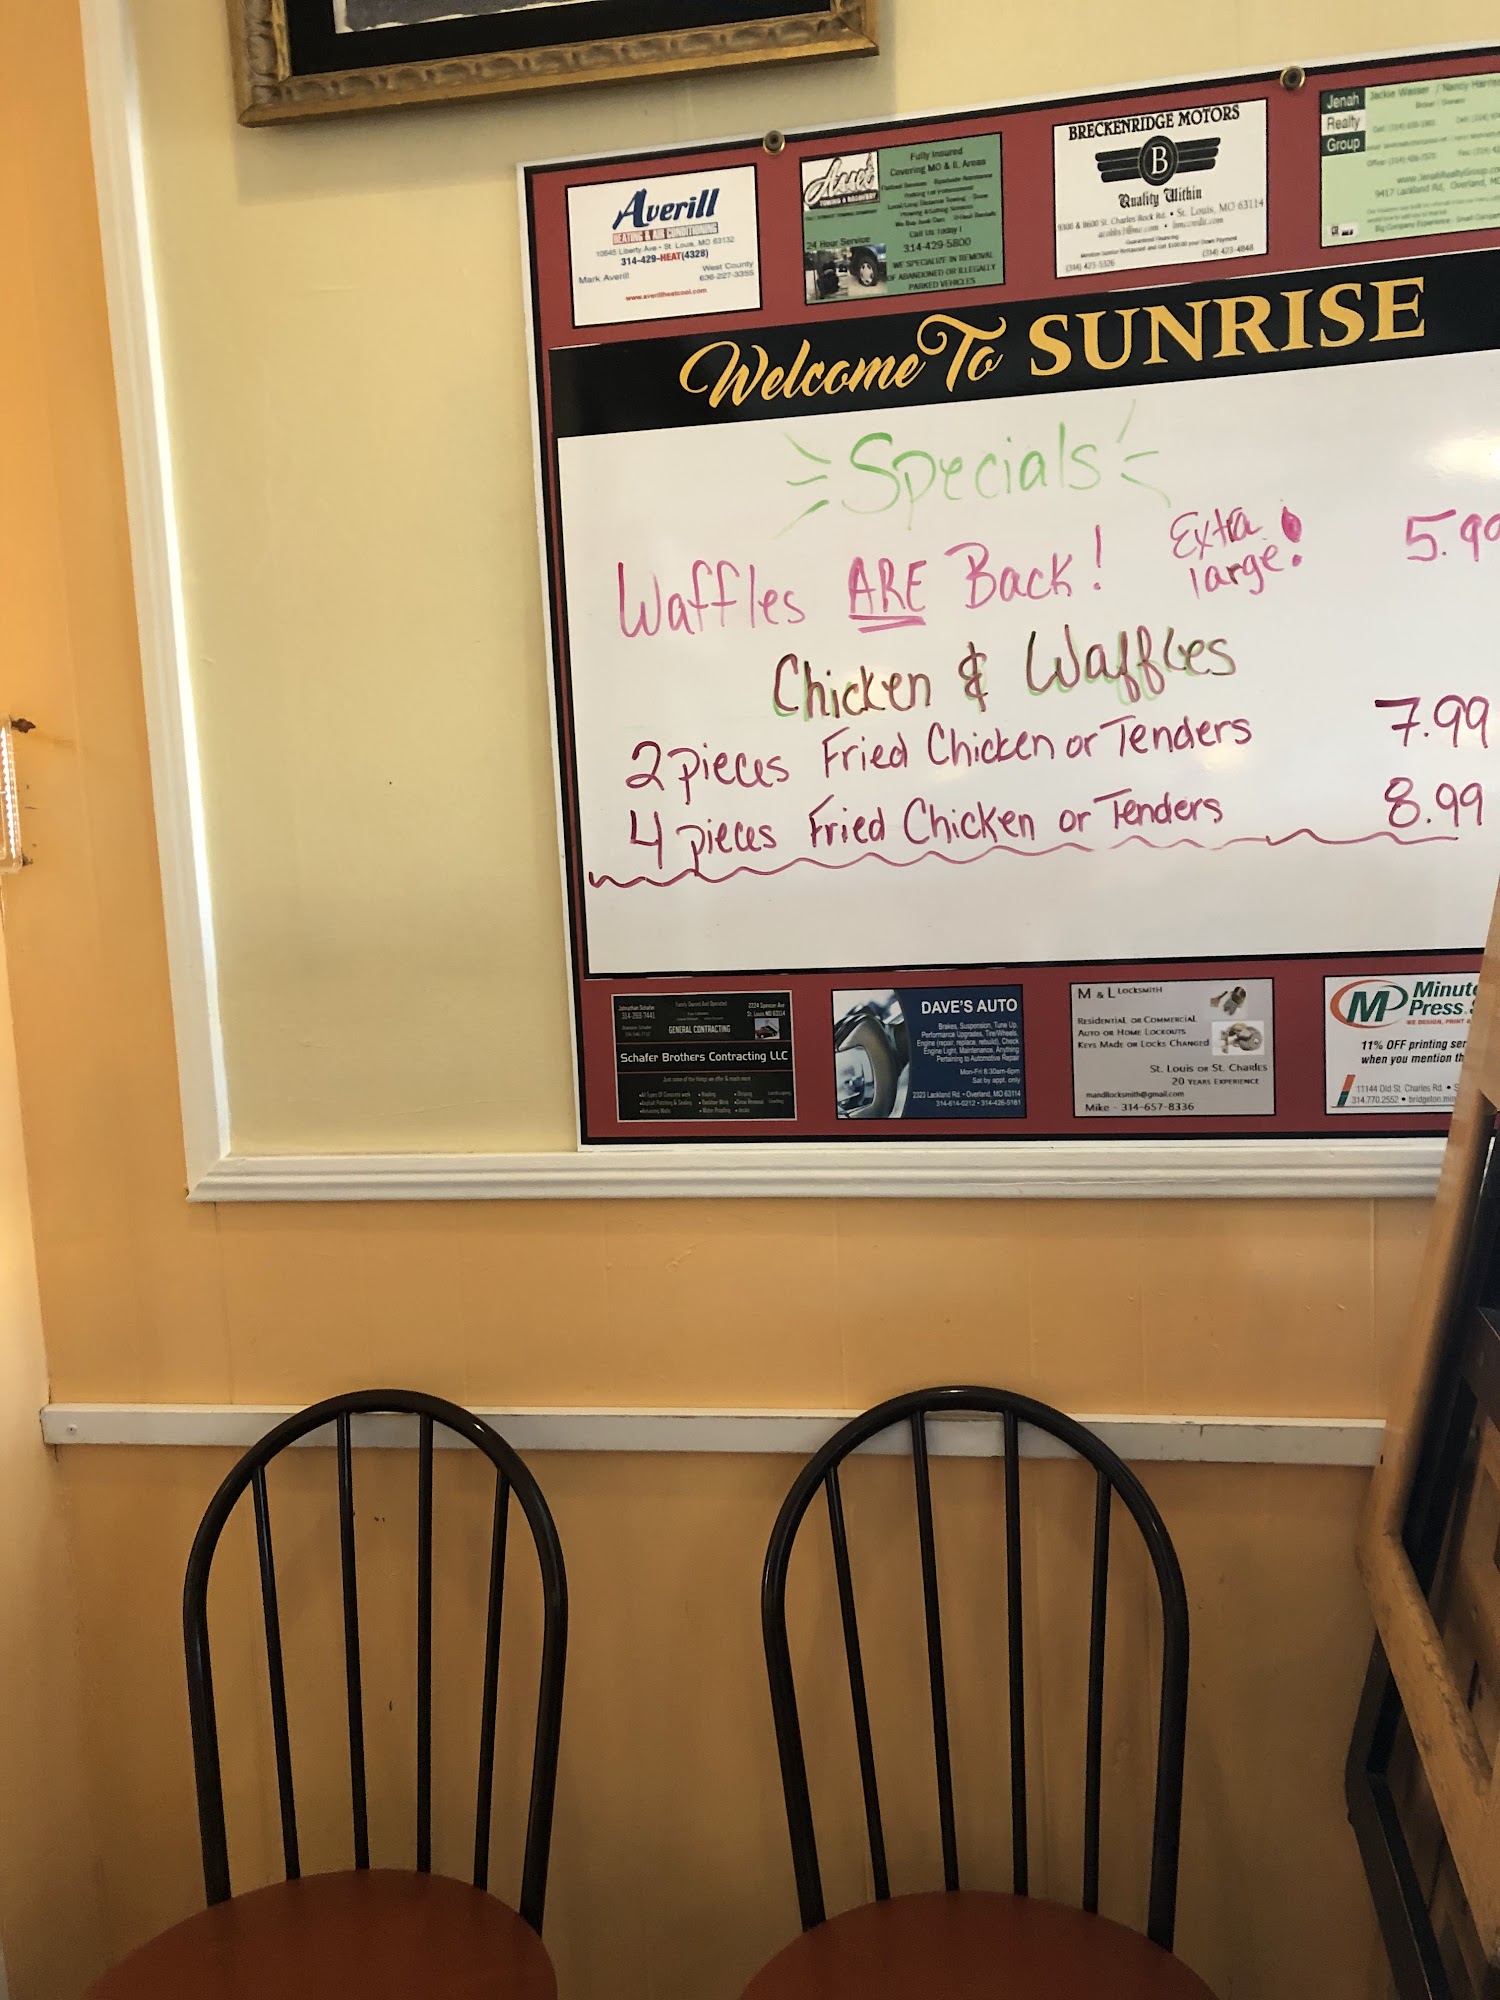 Averill
HEATING & AIR CONDITIONING
10645 Liberty Ave • St. Louis, MO 63132
314-429-HEAT(4328)
Mark Averill
West County
636-227-3355
www.averillheatcool.com
Asset
TOWING & RECOVERY
24 Hour Service
Fully Insured
Covering MO & IL Areas
Call Us Today!
314-429-5800
WE SPECIALIZE IN REMOVAL
OF ABANDONED OR ILLEGALLY
PARKED VEHICLES
BRECKENRIDGE MOTORS
B
Quality Within
9300 & 8600 St. Charles Rock Rd. • St. Louis, MO 63114
Guaranteed Financing
(314) 423-5326
(314) 423-4848
Jenah
Realty
Group
Jackie Weiser / Nancy
9417 Lackland Rd, Overland,
Welcome To SUNRISE
Specials
Waffles ARE Back! Extra large! 5.99
Chicken & Waffles
2 pieces Fried Chicken or Tenders 7.99
4 pieces Fried Chicken or Tenders 8.99
Johnathan Schafer
314-255-7441
Family Owned And Operated
GENERAL CONTRACTING
2224 Spencer Ave
St. Louis, MO 63114
Schafer Brothers Contracting LLC
DAVE'S AUTO
Brakes, Suspension, Tune Up,
Performance Upgrades, Tire/Wheels,
Engine (repair, replace, rebuild), Check
Engine Light, Maintenance, Anything
Pertaining to Automotive Repair
Mon-Fri 8:30am-6pm
Sat by appt. only
2323 Lackland Rd. • Overland, MO 63114
314-614-0212 • 314-426-5161
M & L LOCKSMITH
RESIDENTIAL OR COMMERCIAL
AUTO OR HOME LOCKOUTS
KEYS MADE OR LOCKS CHANGED
ST. LOUIS OR ST. CHARLES
20 YEARS EXPERIENCE
mandllocksmith@gmail.com
Mike - 314-657-8336
MP Minute
Press
WE DESIGN, PRINT &
11% OFF printing ser
when you mention th
11144 Old St. Charles Rd. • S
314.770.2552 • bridgeton.min